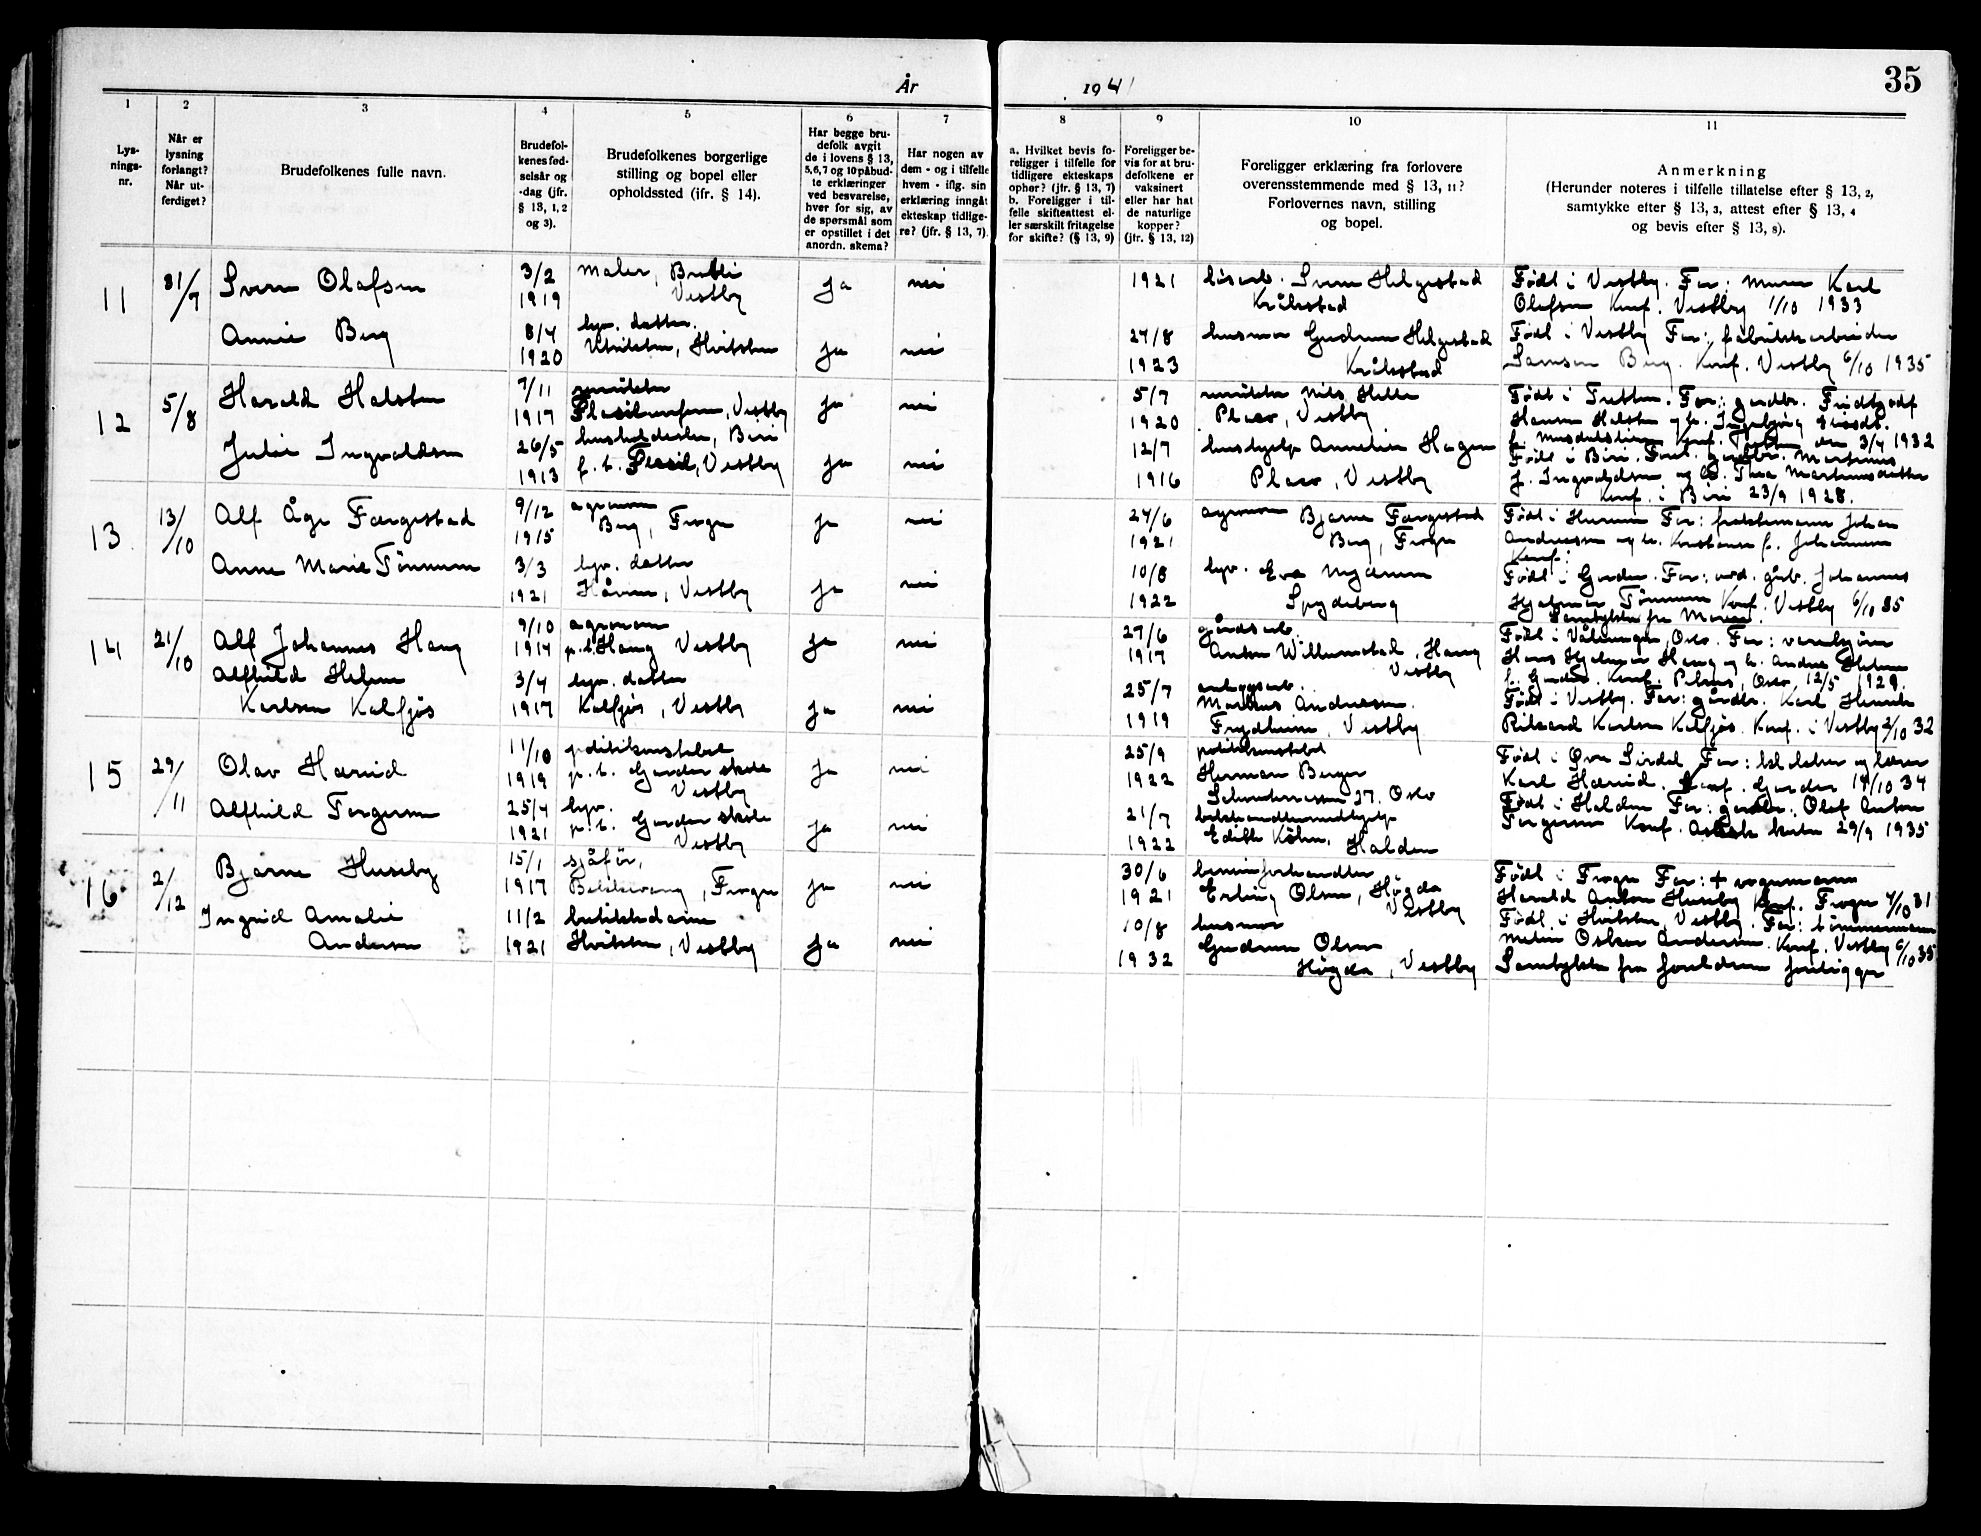 35
År 1941
1 2 3 4 5 6 7 8 9 10 11
Lys-
nings-
nr.
Når er
lysning
forlangt?
Når ut-
ferdiget?
Brudefolkenes fulle navn.
Brudefol-
kenes fød-
selsår og
-dag (jfr.
§ 13, 1, 2
og 3).
Brudefolkenes borgerlige
stilling og bopel eller
opholdssted (ifr. § 14).
Har begge bru-
defolk avgit
de i lovens § 13,
5,6,7 og 10 påbud-
te erklæringer
ved besvarelse,
hver for sig, av
de spørsmål som
er opstillet i det
anordn. skema?
Har nogen av
dem - og i tilfelle
hvem - iflg. sin
erklæring inngåt
ekteskap tidlige-
re? (jfr. § 13, 7).
a. Hvilket bevis fo-
religger i tilfelle for
tidligere ekteskaps
ophør? (jfr. § 13, 7)
b. Foreligger i til-
felle skifteattest el-
ler særskilt fritagelse
for skifte? (§ 13, 9)
Foreligger be-
vis for at bru-
defolkene er
vaksinert
eller har hat
de naturlige
kopper?
(jfr. § 13, 12)
Foreligger erklæring fra forlovere
overensstemmende med § 13, 11?
Forlovernes navn, stilling
og bopel.
Anmerkning
(Herunder noteres i tilfelle tillatelse efter § 13, 2,
samtykke efter § 13, 3, attest efter § 13, 4
og bevis efter § 13, 8).
11 31/7 Svein Olafsen 3/2 1919 maler, Vestby ja nei 1921 Svein Helgestad
Kråkstad
Født i Vestby. Far: murer Karl
Olafsen Konf. Vestby 1/10 1933
Annie Berg 8/4 1920 hjv. datter
Hvitsten ja nei 24/8 1923 husmor Gudrun Helgestad
Kråkstad
Født i Vestby Far: fabrikkarbeider
Samson Berg. Konf. Vestby 6/10 1935
12 5/8 Harald Halsten 7/11 1917 Vestby ja nei 5/7 1920 Nils Helle
Vestby
Hansen Halsten
Konf. 3/4 1932
Julie Ingvaldsen 26/5 1913 Biri
p. t. Vestby ja nei 12/7 1916 hushjelp Annelise Hagen
Vestby
Født i Biri.
J. Ingvaldsen
Konf. i Biri 23/9 1928.
13 13/10 Alf Åge Færgestad 9/12 1915 agronom
Berg, Frogn ja nei 24/6 1921 agronom Bjarne Færgestad
Berg, Frogn
Født i Hurum Far: fraktemann Johan
Andreassen
Konf:
Anne Marie Tønnum 3/3 1921 hjv. datter
Vestby ja nei 10/8 1922 hjv. Eva
Spydeberg
Født i Garder. Far: gårdb. Johannes
Hjalmar Tønnum Konf. Vestby 6/10 35
Samtykke fra Moren.
14 21/10 Alf Johannes Haug 9/10 1914 agronom
p.t. Haug Vestby ja nei 27/6 1917 gårdsarb.
Anton Willumstad, Haug
Vestby
Født i Vålerengen, Oslo. Far:
Hans Hjalmar Haug
Konf. Oslo 12/5 1929.
Alfhild Helene
Karlsen Kolfjøs 3/4 1917 hjv. datter
Kolfjøs, Vestby ja nei 25/7 1919 anleggsarb.
Markus Andreassen.
Frydheim, Vestby
Født i Vestby. Far: gårdbr. Karl Henrik
Rikard Karlsen Kolfjøs. Konf. i Vestby 2/10 32
15 29/11 Olav Hærid 11/10 1919 politikonstabel
p. t. Garder skole
Vestby ja nei 25/9 1922 politikonstabel
Herman Berger
27. Oslo
Født i Øvre Sirdal Far: og lærer
Karl Hærid. Konf. Garder 14/10 34
Alfhild Torgersen 25/4 1921 hjv.
p. t. Garder skole
Vestby ja nei 21/7 1922
Edith Köhn, Halden
Født i Halden Far: Olaf Anton
Torgersen Konf. 29/9 1935
16 2/12 Bjarne Huseby 15/1 1917 sjåfør,
Frogn ja nei 30/6 1921 bensinforhandler
Erling Olsen, Høgda
Vestby
Født i Frogn Far: + vognmann
Harald Anton Huseby Konf. Frogn 4/10 31
Ingrid Amalie
Andersen 11/2 1921 butikkdame
Hvitsten, Vestby ja nei 10/8 1932 husmor
Gudrun Olsen
Høgda, Vestby
Født i Hvitsten, Vestby. Far: tømmermann
Oskar Andersen. Konf. Vestby 6/10 35
Samtykke fra foreldrene foreligger